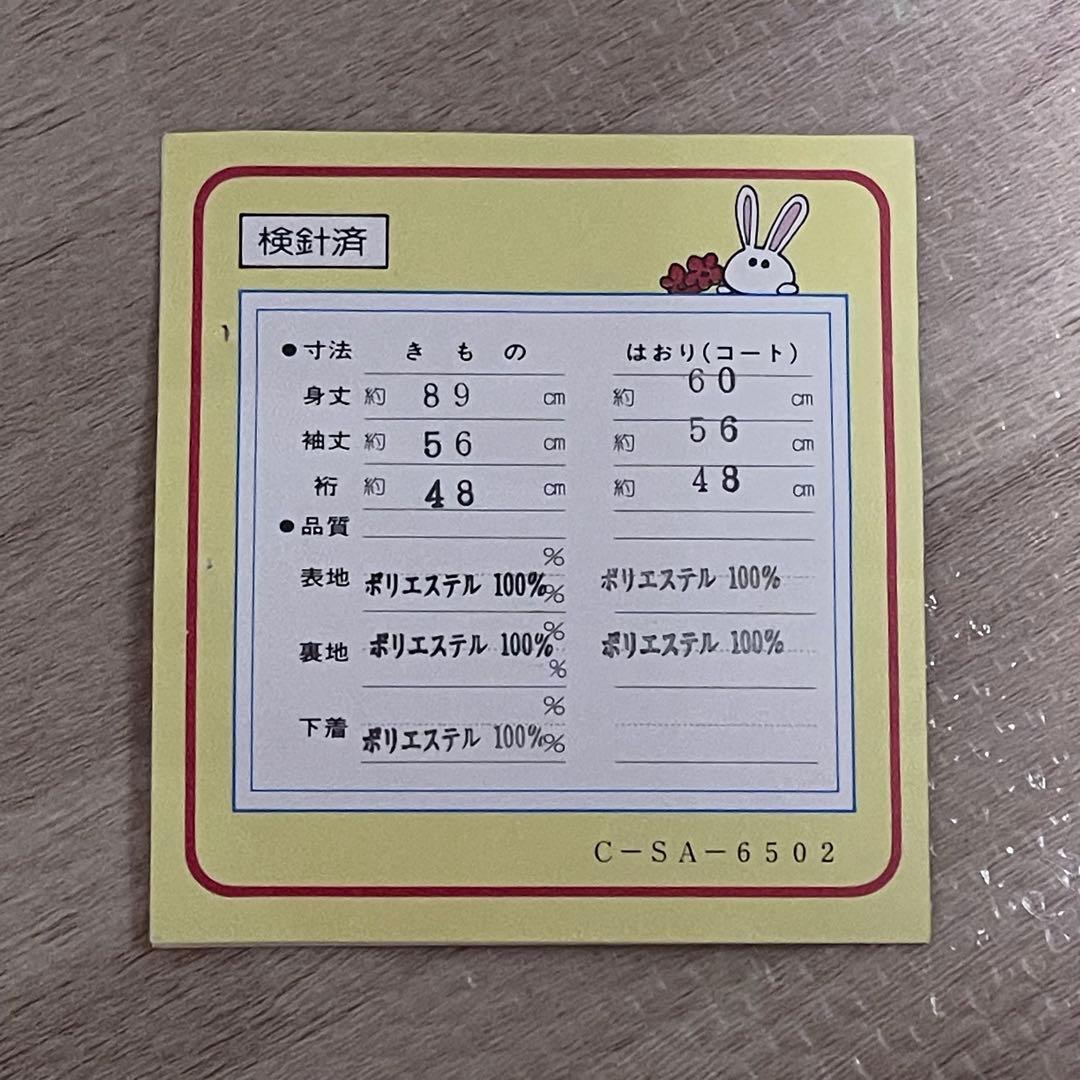 検針済
●寸法 きもの はおり(コート)
身丈 約 89 cm 約 60 cm
袖丈 約 56 cm 約 56 cm
裄 約 48 cm 約 48 cm
●品質
%
表地 ポリエステル 100% % ポリエステル 100%
%
裏地 ポリエステル 100% ポリエステル 100%
%
%
下着 ポリエステル 100% %
C-SA-6502